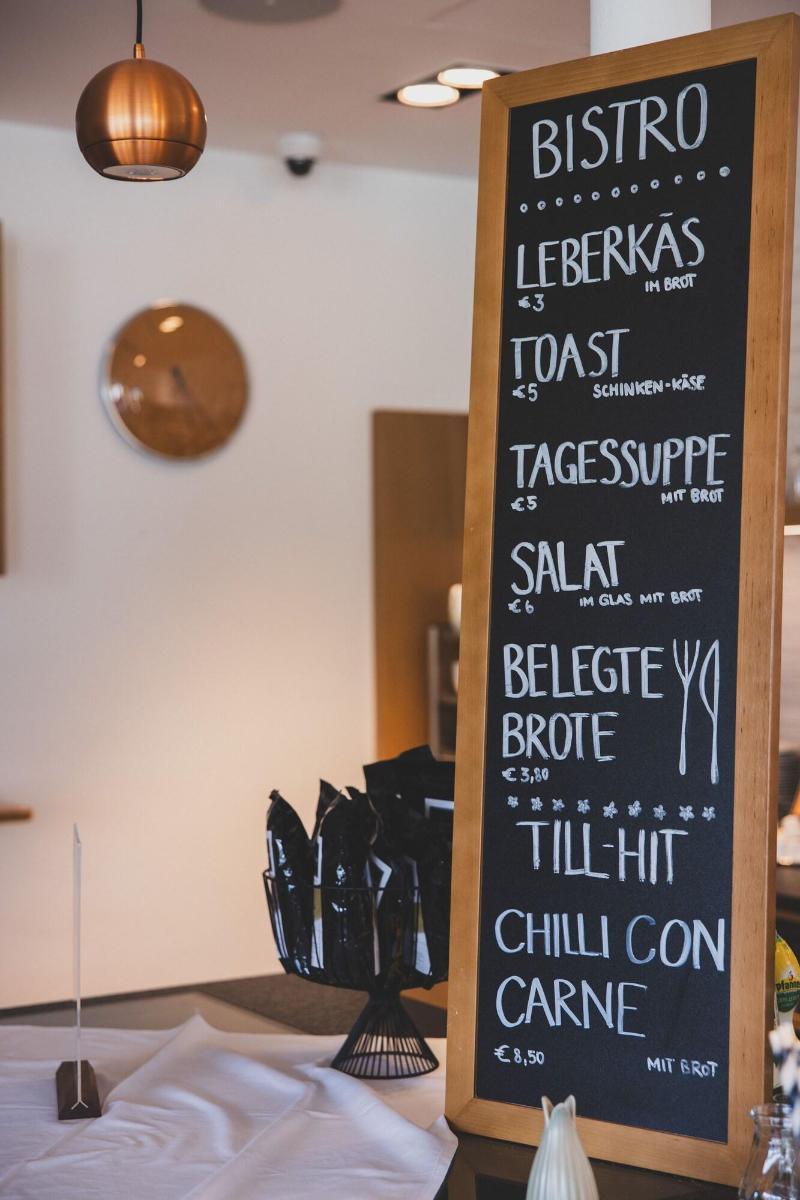 BISTRO
LEBERKÄS
€3 IM BROT
TOAST
€5 SCHINKEN-KÄSE
TAGESSUPPE
€5 MIT BROT
SALAT
€6 IM GLAS MIT BROT
BELEGTE
BROTE
€3,80
TILL-HIT
CHILLI CON
CARNE
€8,50 MIT BROT